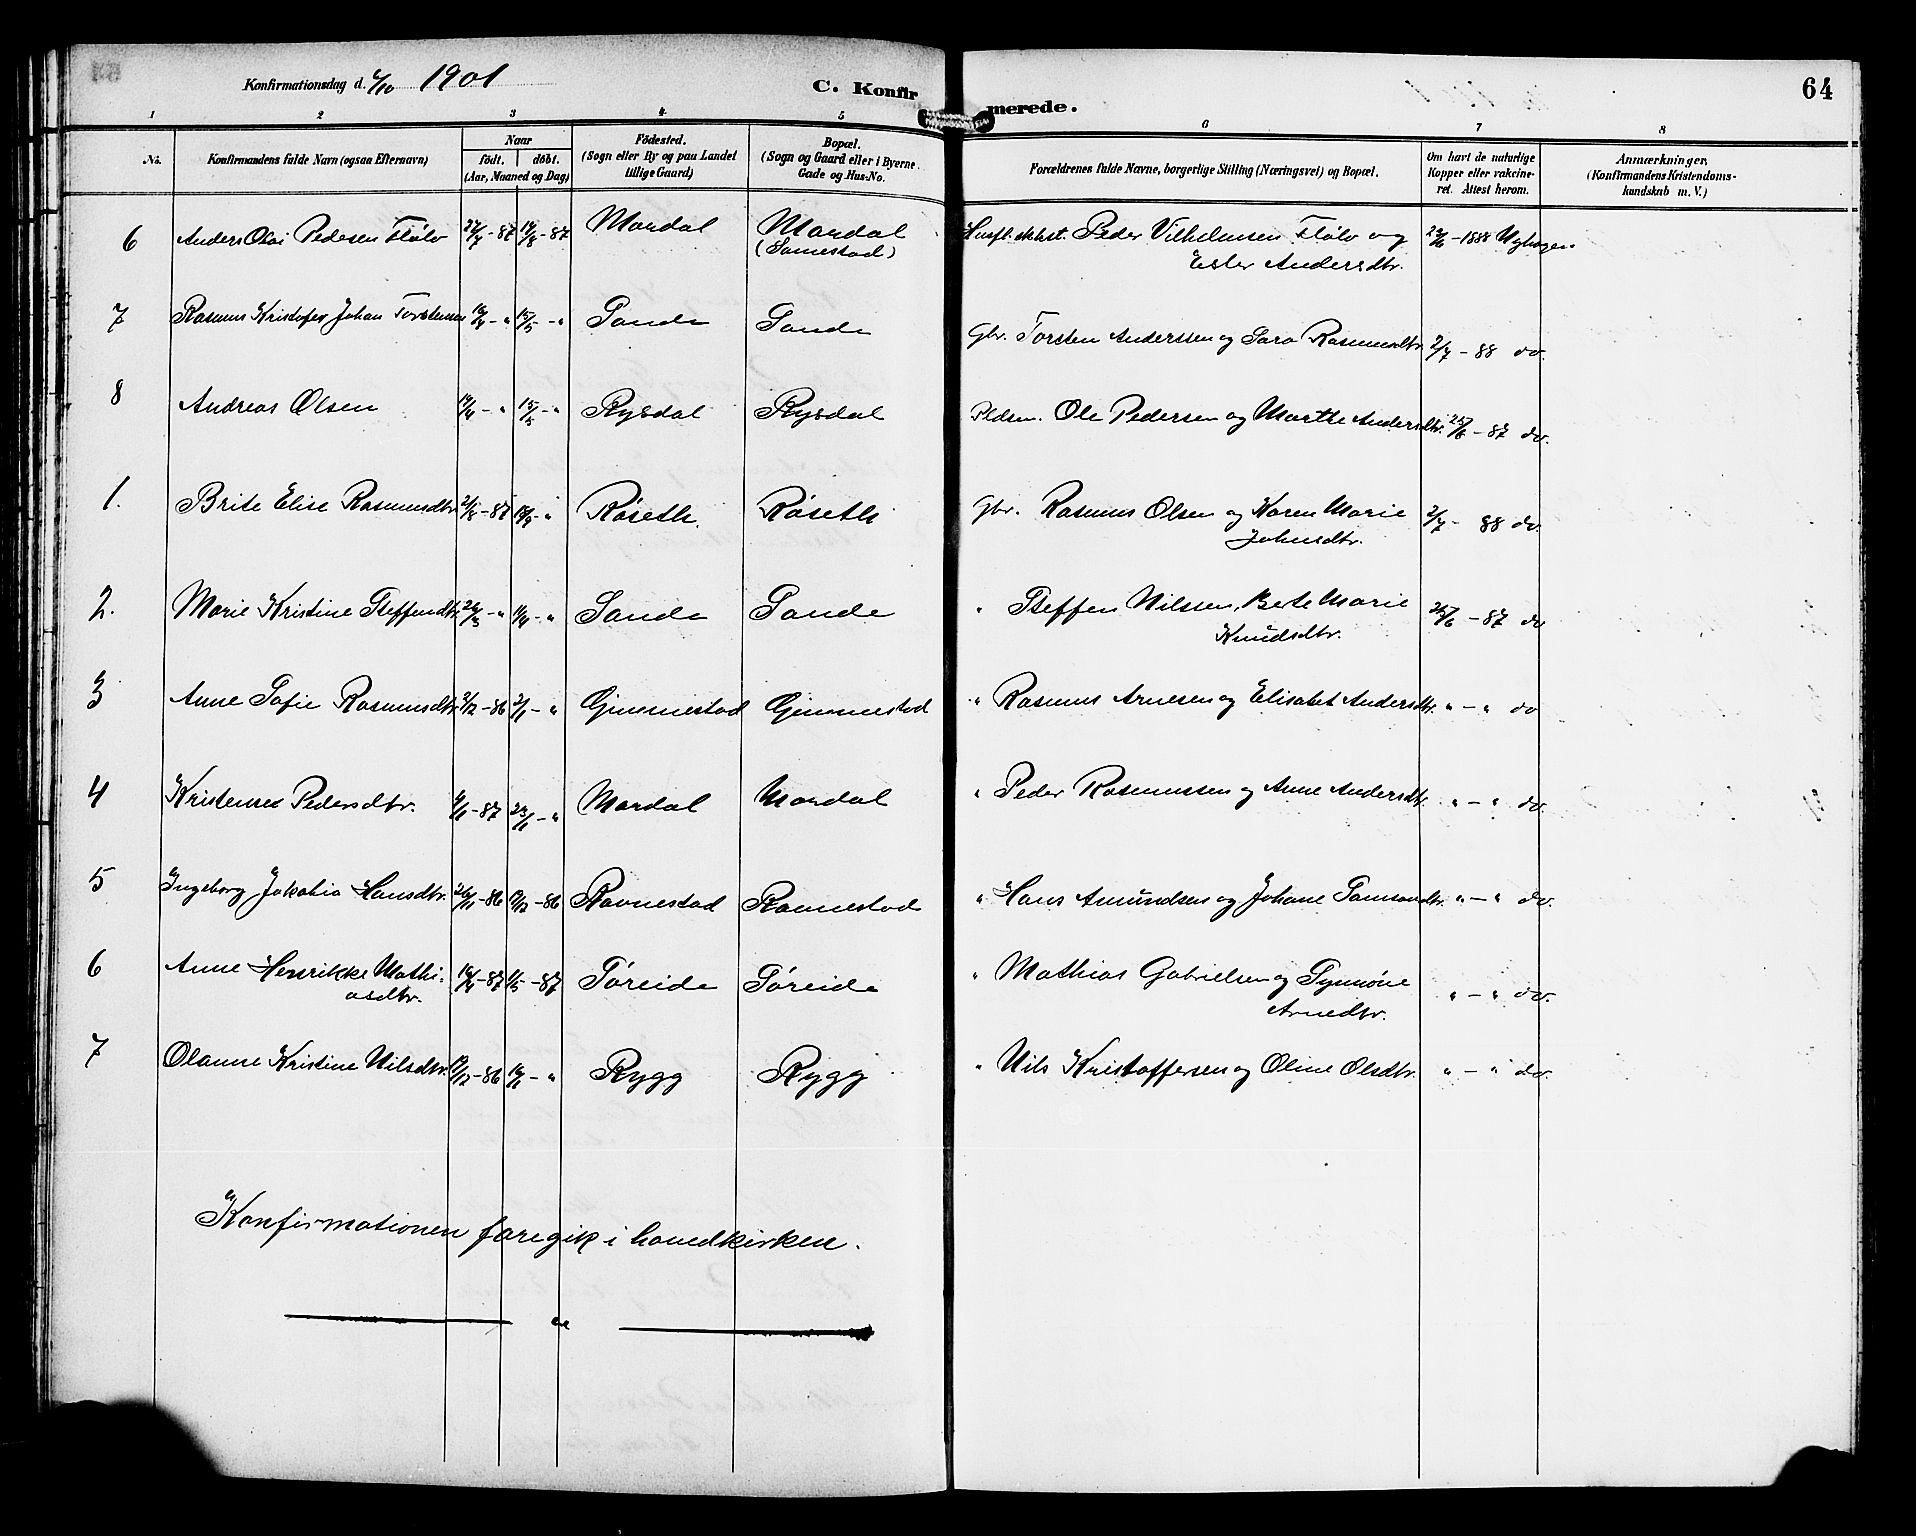 Konfirmationsdag d. 6/10 1901
C. Konfirmerede.
64
1 2 3 4 5 6 7 8
No.
Konfirmandens fulde Navn (ogsaa Efternavn)
Naar
födt. döbt.
(Aar, Maaned og Dag)
Födested.
(Sogn eller By og paa Landet
tillige Gaard)
Bopæl.
(Sogn og Gaard eller i Byerne
Gade og Hus-No.
Forældrenes fulde Navne, borgerlige Stilling (Næringsvei) og Bopæl.
Om havt de naturlige
Kopper eller vakcine-
ret. Attest herom.
Anmærkninger.
(Konfirmandens Kristendoms-
kundskab m. V.)
6 Anders Olai Pedersen Flølo 27/7 - 87 14/8 - 87 Mardal Mardal Peder Vilhelmsen Flølo og 29/6 - 1888 Myhagen
(Samestad) Ester Andersdtr.
7 Rasmus Kristofer Johan Torstensen 10/4 - " 15/5 - " Sande Sande Gbr. Torsten Anderssen og Sara Rasmusdtr. 2/7 - 88 do.
8 Andreas Olsen 14/4 - " 15/5 - " Rysdal Rysdal Pldsm. Ole Pedersen og Marthe Andersdtr. 25/6 - 87 do.
1. Brite Elise Rasmusdtr. 21/8 - 87 18/9 - " Røseth. Røseth Gbr. Rasmus Olsen og Karen Marie 2/7 - 88 do.
Johnsdtr.
2. Marie Kristine Steffendtr. 26/3 - " 11/4 - " Sande Sande " Steffen Nilssen, Berte Marie 25/6 - 87 do
Knudsdtr.
3 Anne Sofie Rasmusdtr. 2/12 - 86 2/1 - " Gimmestad Gimmestad " Rasmus Arnesen og Elisabet Andersdtr. " - " do
4 Kristense Pedersdtr. 6/1 - 87 23/1 - " Mardal Mardal " Peder Rasmussen og Anne Andersdtr. " - " do.
5 Ingeborg Jakobia Hansdtr. 26/11 - 86 12/12 - 86 Ravnestad Ravnestad " Hans Amundsen og Johane Samsondtr. " - " do.
6 Anne Henrikke Mathi- 16/4 - 87 1/5 - 87 Søreide Søreide " Mathias Gabrielsen og Synnøve " - " do.
asdtr. Arnedtr.
7 Olanne Kristine Nilsdtr. 19/12 - 86 16/1 - " Rygg Rygg " Nils Kristoffersen og Oline Olsdtr. " - " do.
Konfirmationen foregik i hovedkirken.